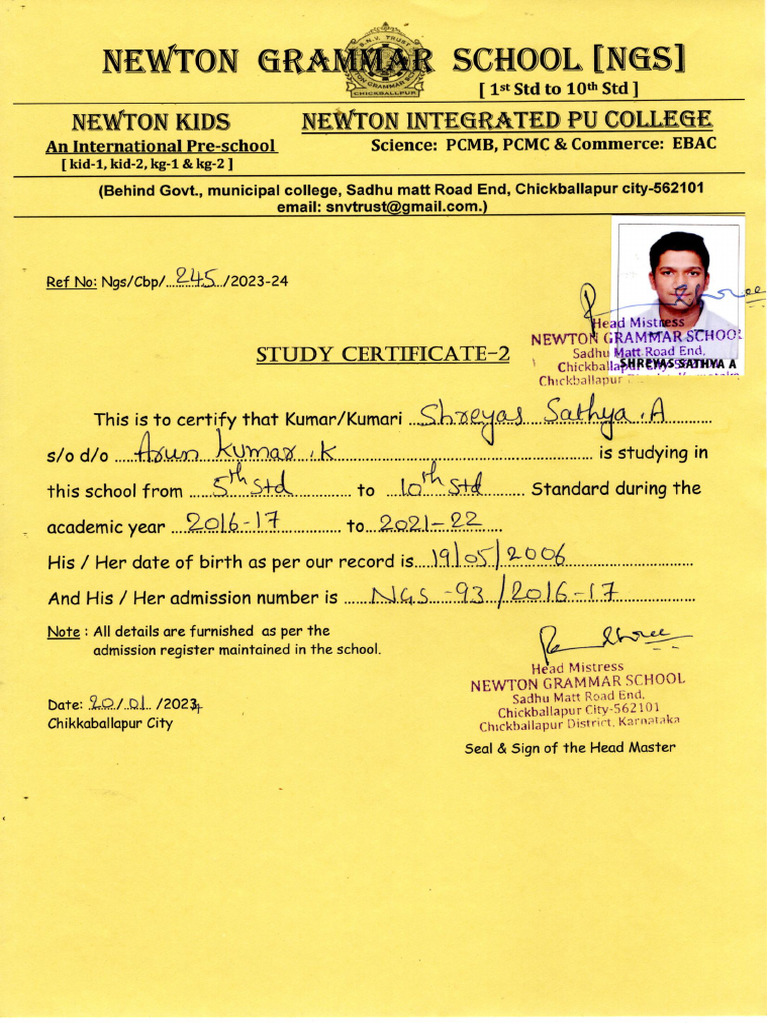 NEWTON GRAMMAR SCHOOL [NGS]
S.N.V. TRUST
CHICKBALLPUR
[ 1st Std to 10th Std ]
NEWTON KIDS
An International Pre-school
[ kid-1, kid-2, kg-1 & kg-2 ]
NEWTON INTEGRATED PU COLLEGE
Science: PCMB, PCMC & Commerce: EBAC
(Behind Govt., municipal college, Sadhu matt Road End, Chickballapur city-562101
email: snvtrust@gmail.com.)
Ref No: Ngs/Cbp/...245.../2023-24
Head Mistress
NEWTON GRAMMAR SCHOOL
Sadhu Matt Road End,
Chickballapur City-562101
Chickballapur District, Karnataka
SHREYAS SATHYA A
STUDY CERTIFICATE-2
This is to certify that Kumar/Kumari Shreyas Sathya .A
s/o d/o Arun Kumar .K is studying in
this school from 5th Std to 10th Std Standard during the
academic year 2016-17 to 2021-22
His / Her date of birth as per our record is 19/05/2006
And His / Her admission number is NGS-93/2016-17
Note : All details are furnished as per the
admission register maintained in the school.
Date: 20/01/2024
Chikkaballapur City
Head Mistress
NEWTON GRAMMAR SCHOOL
Sadhu Matt Road End,
Chickballapur City-562101
Chickballapur District, Karnataka
Seal & Sign of the Head Master